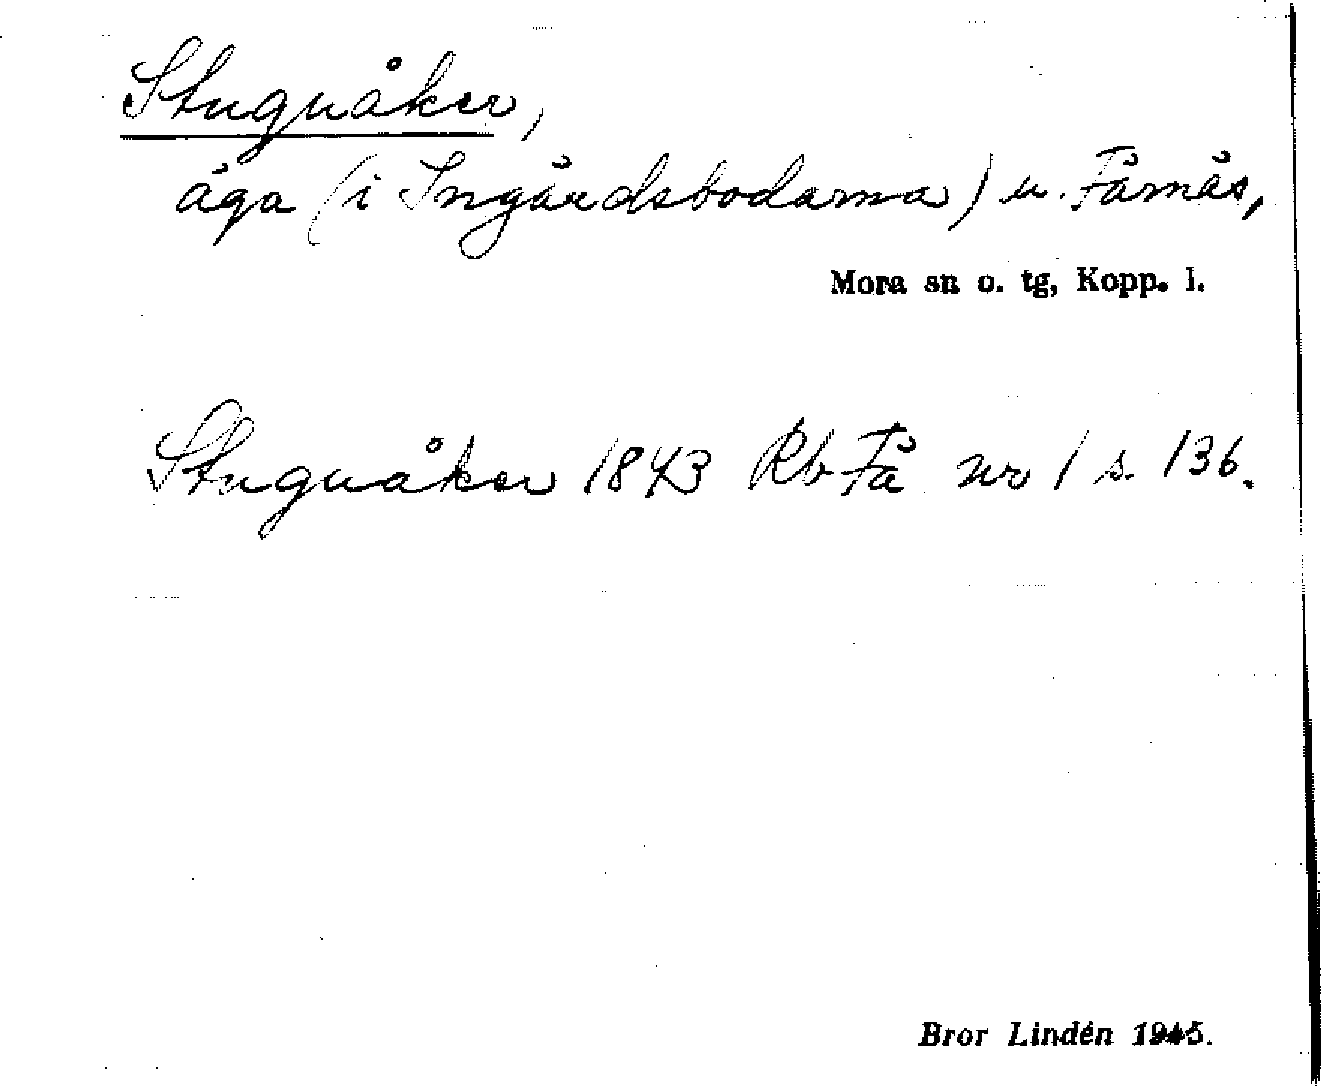 Stuguåker,
äga (i Ingärdsbodarna) u. Färnäs,
Mora sn o. tg, Kopp. l.
Stuguåker 1843 Rb Fä nr 1 s. 136.
Bror Lindén 1945.